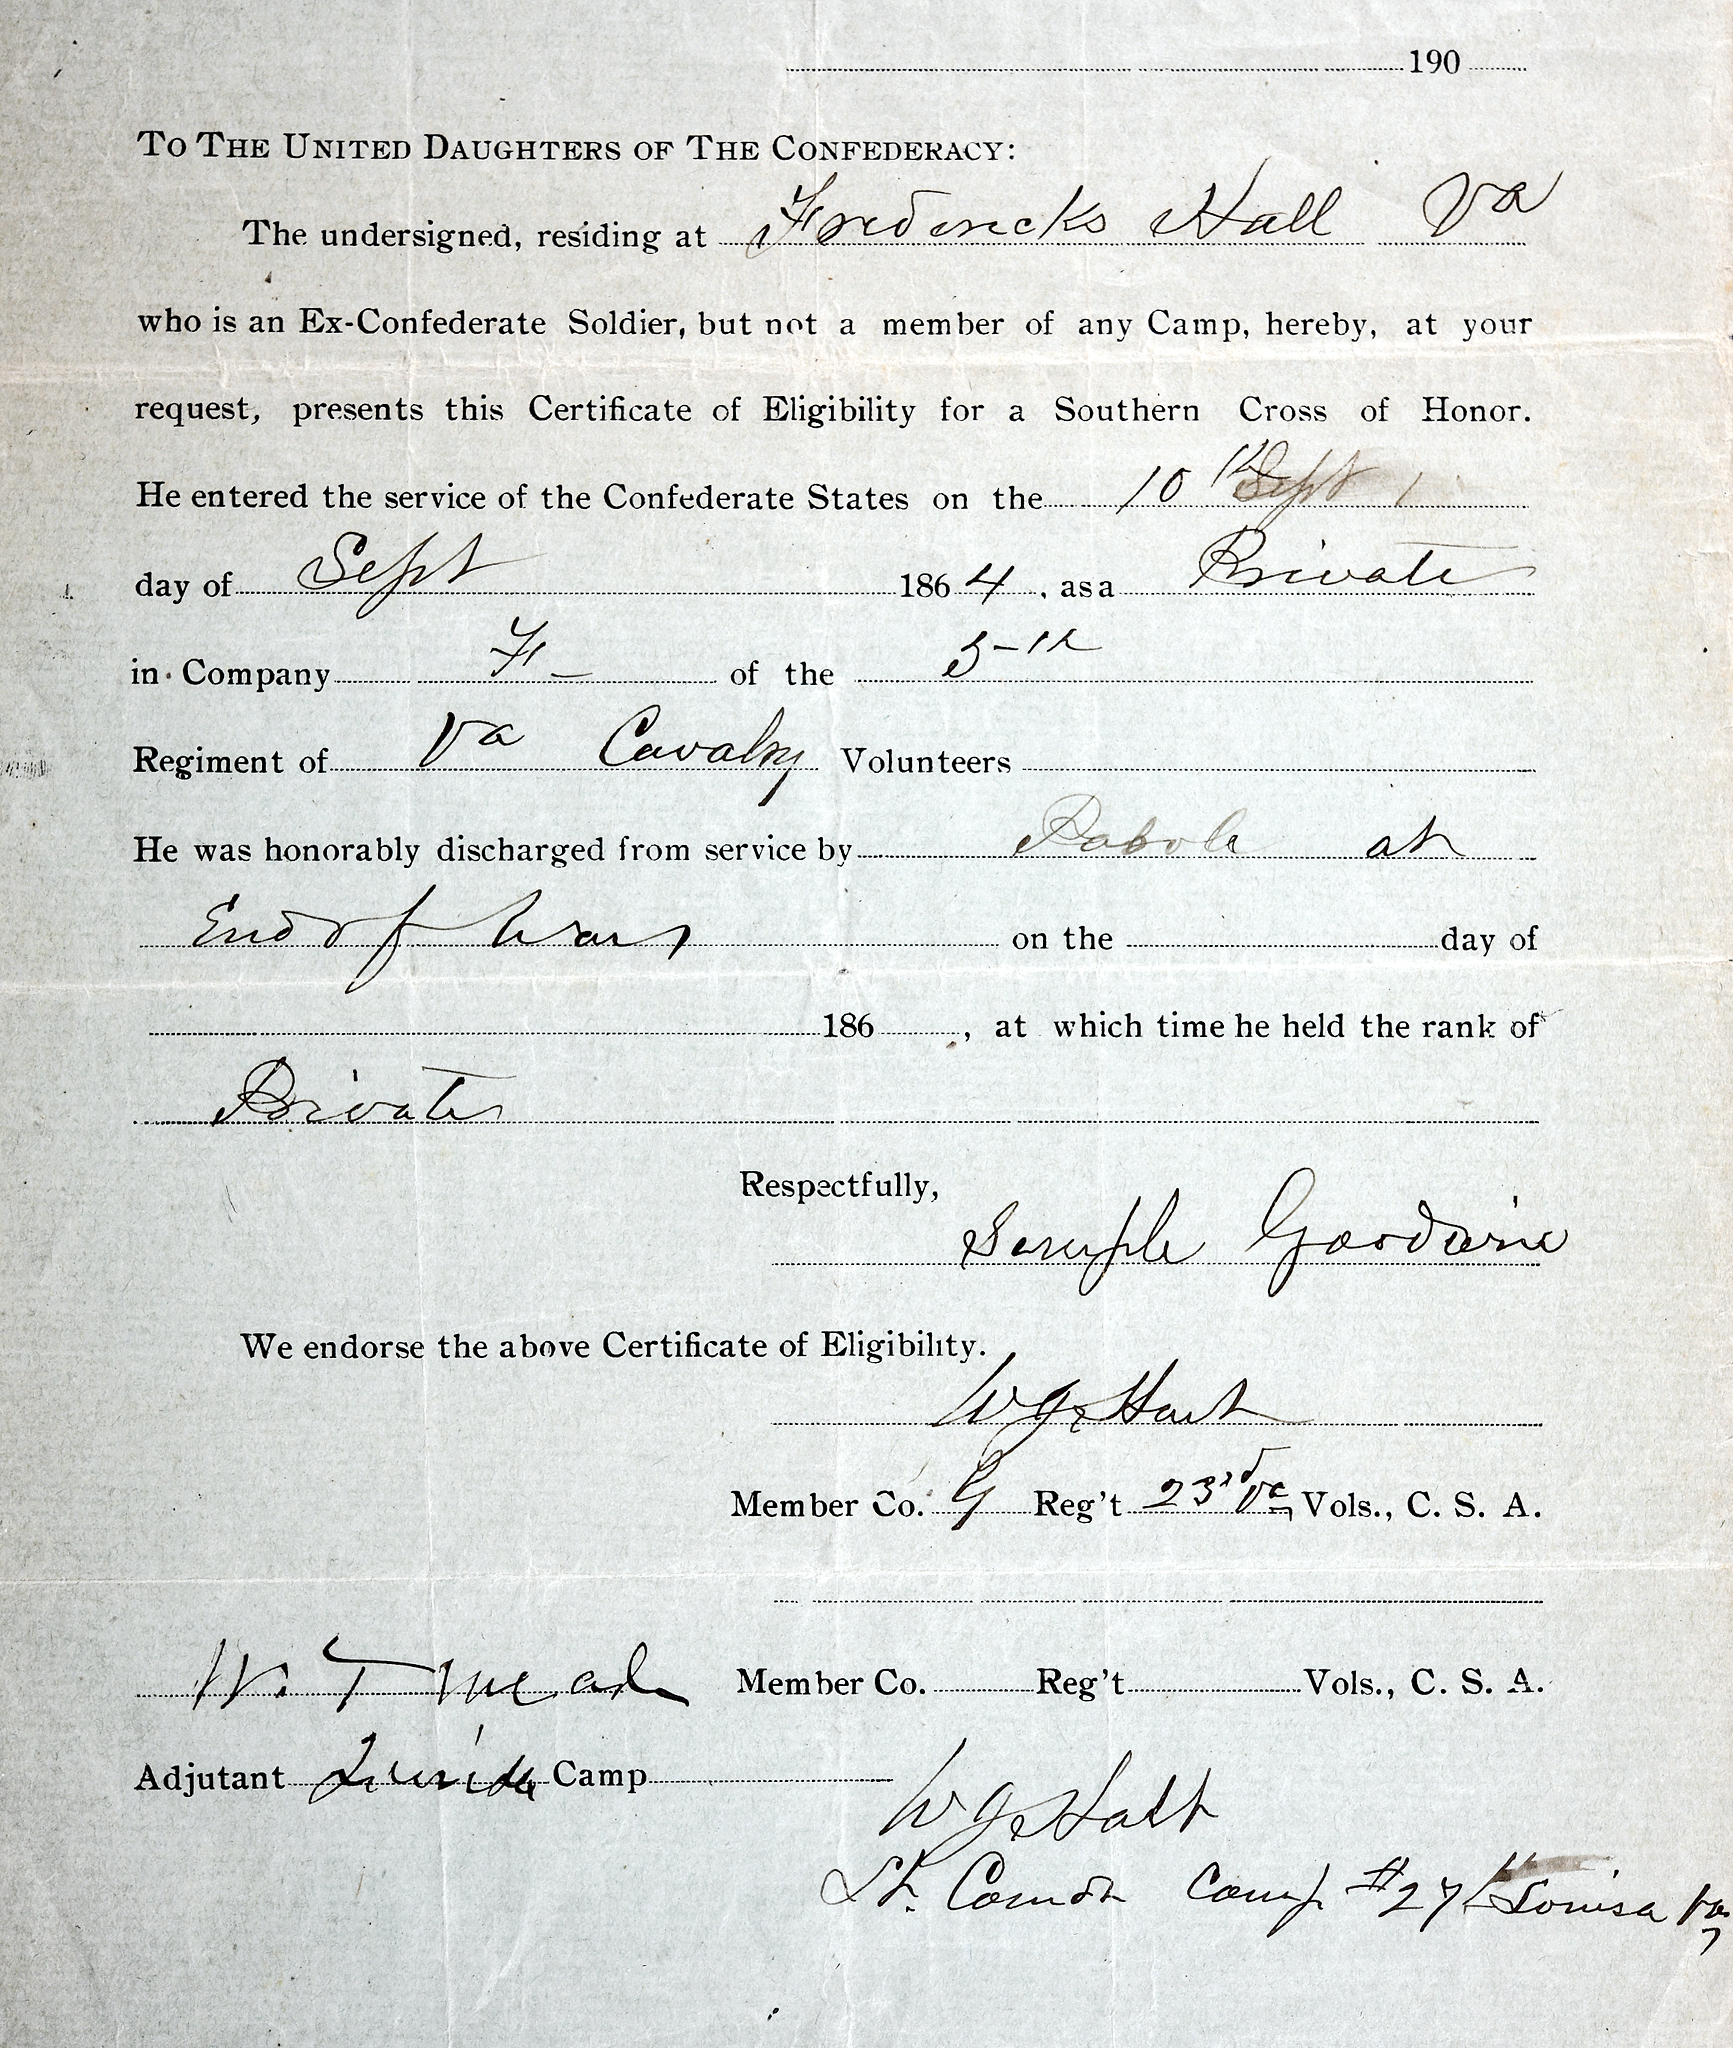 190
TO THE UNITED DAUGHTERS OF THE CONFEDERACY:
The undersigned, residing at Fredericks Hall Va
who is an Ex-Confederate Soldier, but not a member of any Camp, hereby, at your
request, presents this Certificate of Eligibility for a Southern Cross of Honor.
He entered the service of the Confederate States on the 10th Sept
day of Sept 1864, as a Private
in Company F of the 5th
Regiment of Va Cavalry Volunteers
He was honorably discharged from service by Parole at
End of War on the day of
186 , at which time he held the rank of
Private
Respectfully,
Semple Goodwin
We endorse the above Certificate of Eligibility.
W J Hart
Member Co. G Reg't 23rd Va Vols., C. S. A.
W. T Meade Member Co. Reg't Vols., C. S. A.
Adjutant Louisa Camp
Lt. Comdr Camp # 27 Louisa Va